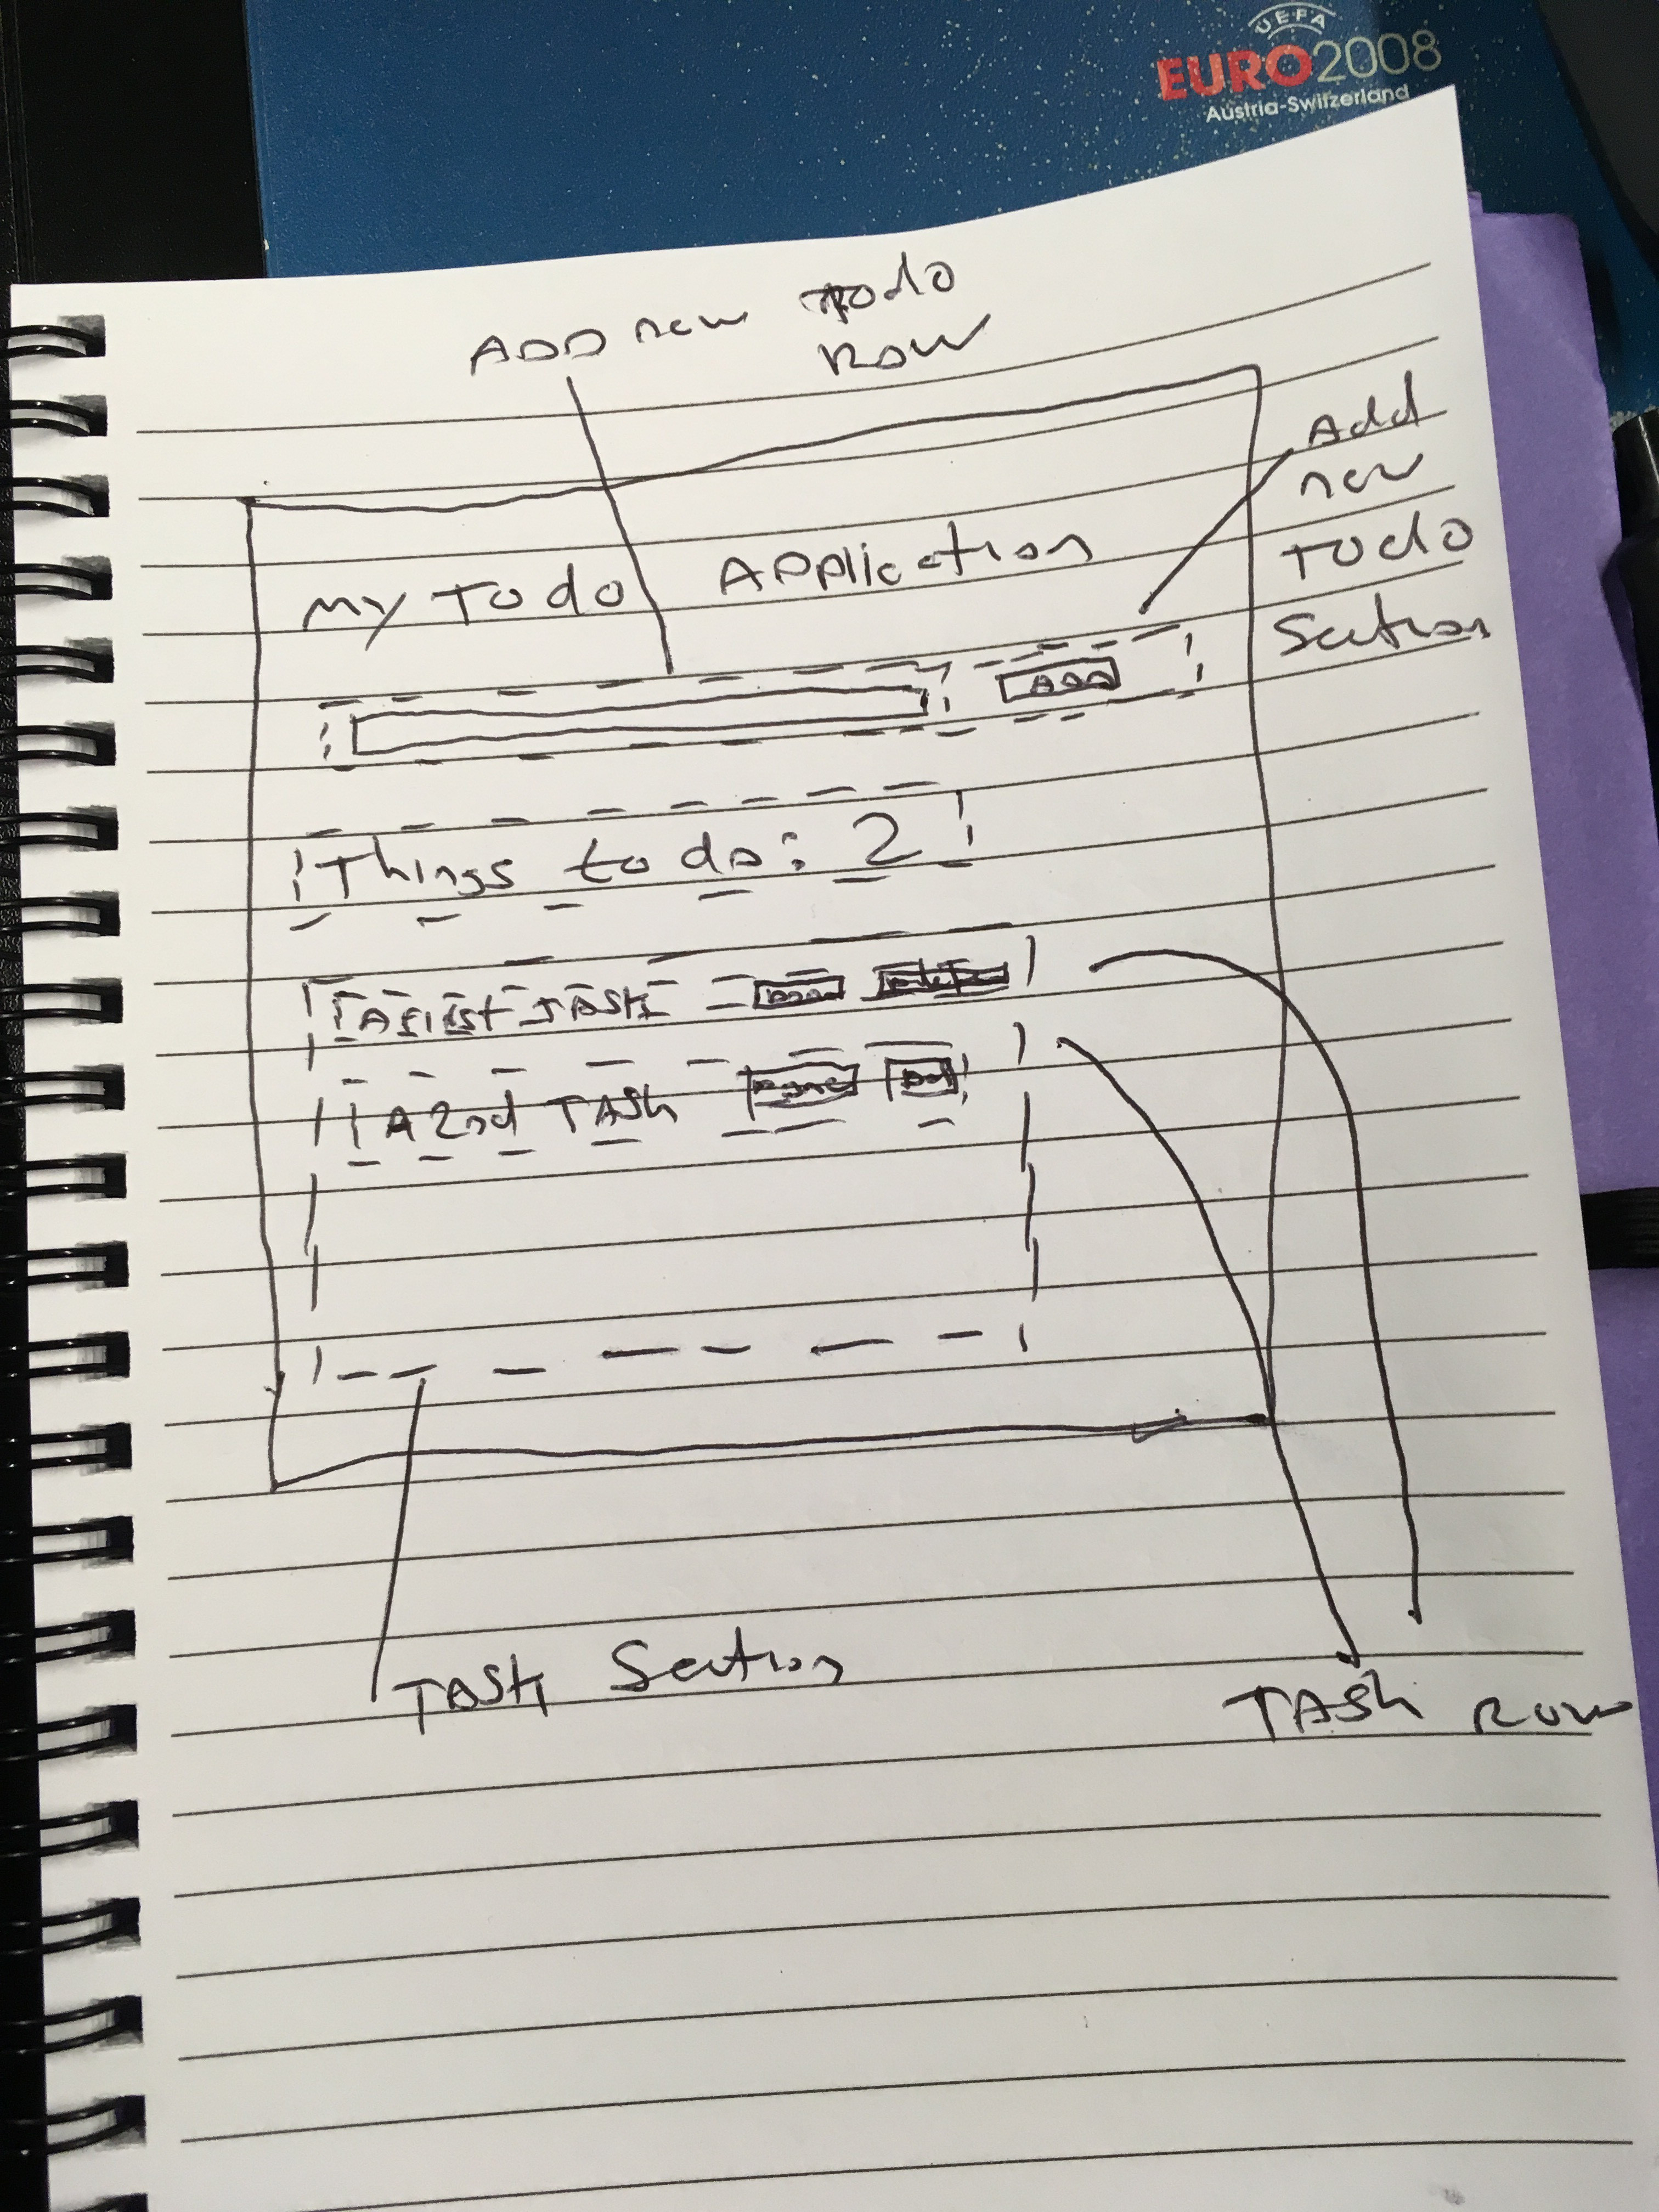 UEFA
EURO2008
Austria-Switzerland
ADD new Todo
Row
Add
new
Todo
Section
My Todo Application
ADD
Things to do: 2
A first TASk
A 2nd TASk
TASk Section
TASk Row